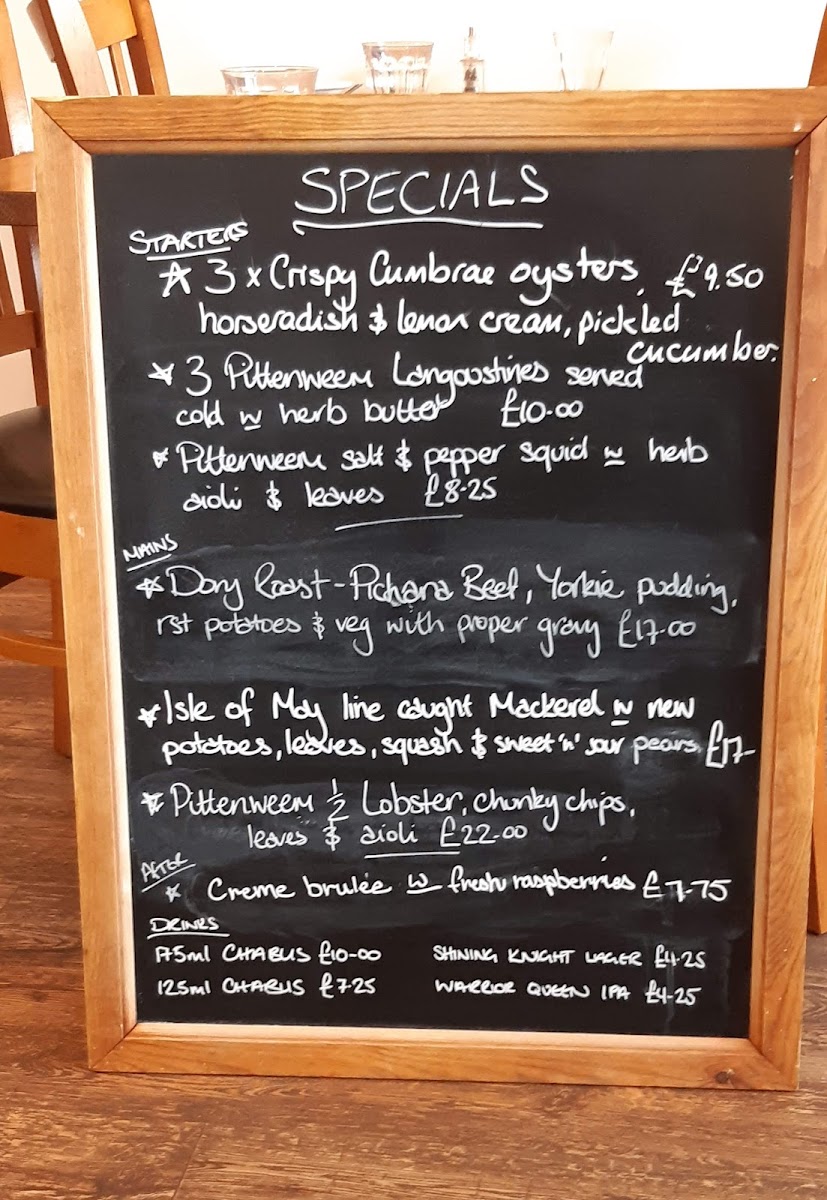 SPECIALS
STARTERS
☆ 3 x Crispy Cumbrae oysters, £9.50
horseradish & lemon cream, pickled
cucumber.
☆ 3 Pittenweem Langoustines served
cold w herb butter £10-00
☆ Pittenweem salt & pepper squid w herb
aioli & leaves £8-25
MAINS
☆ Dony Roast - Pichana Beef, Yorkie pudding,
rst potatoes & veg with proper gravy £17-00
☆ Isle of May line caught Mackerel w new
potatoes, leaves, squash & sweet 'n' sour pears £17-
☆ Pittenweem 1/2 Lobster, chunky chips,
leaves & aioli £22-00
AFTER
☆ Creme brulée w fresh raspberries £7-75
DRINKS
175ml CHABLIS £10-00 SHINING KNIGHT LAGER £4-25
125ml CHABLIS £7-25 WARRIOR QUEEN IPA £4-25